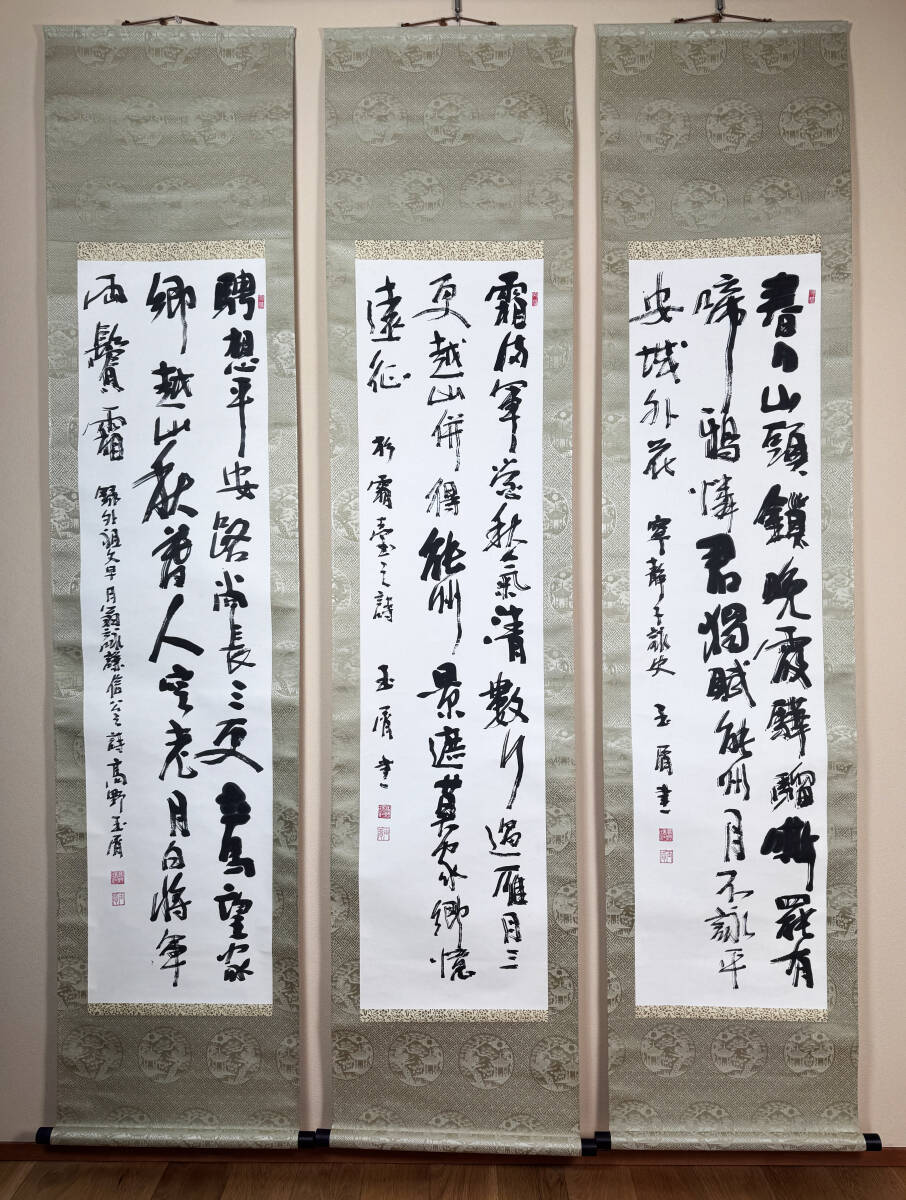 春日山頭鎖晩霞驊騮嘶罷有
啼鴉憐君獨賦能州月不詠平
安城外花 寧静子詠史 玉屑書
霜満軍営秋氣清數行過雁月三
更越山併得能州景遮莫家郷憶
遠征 杉霜臺之詩 玉屑書
騁想平安路尚長三更立馬望家
郷越山秋人空老月白将軍
両鬢霜 録外祖父早月翁詠謙信公之詩 高野玉屑